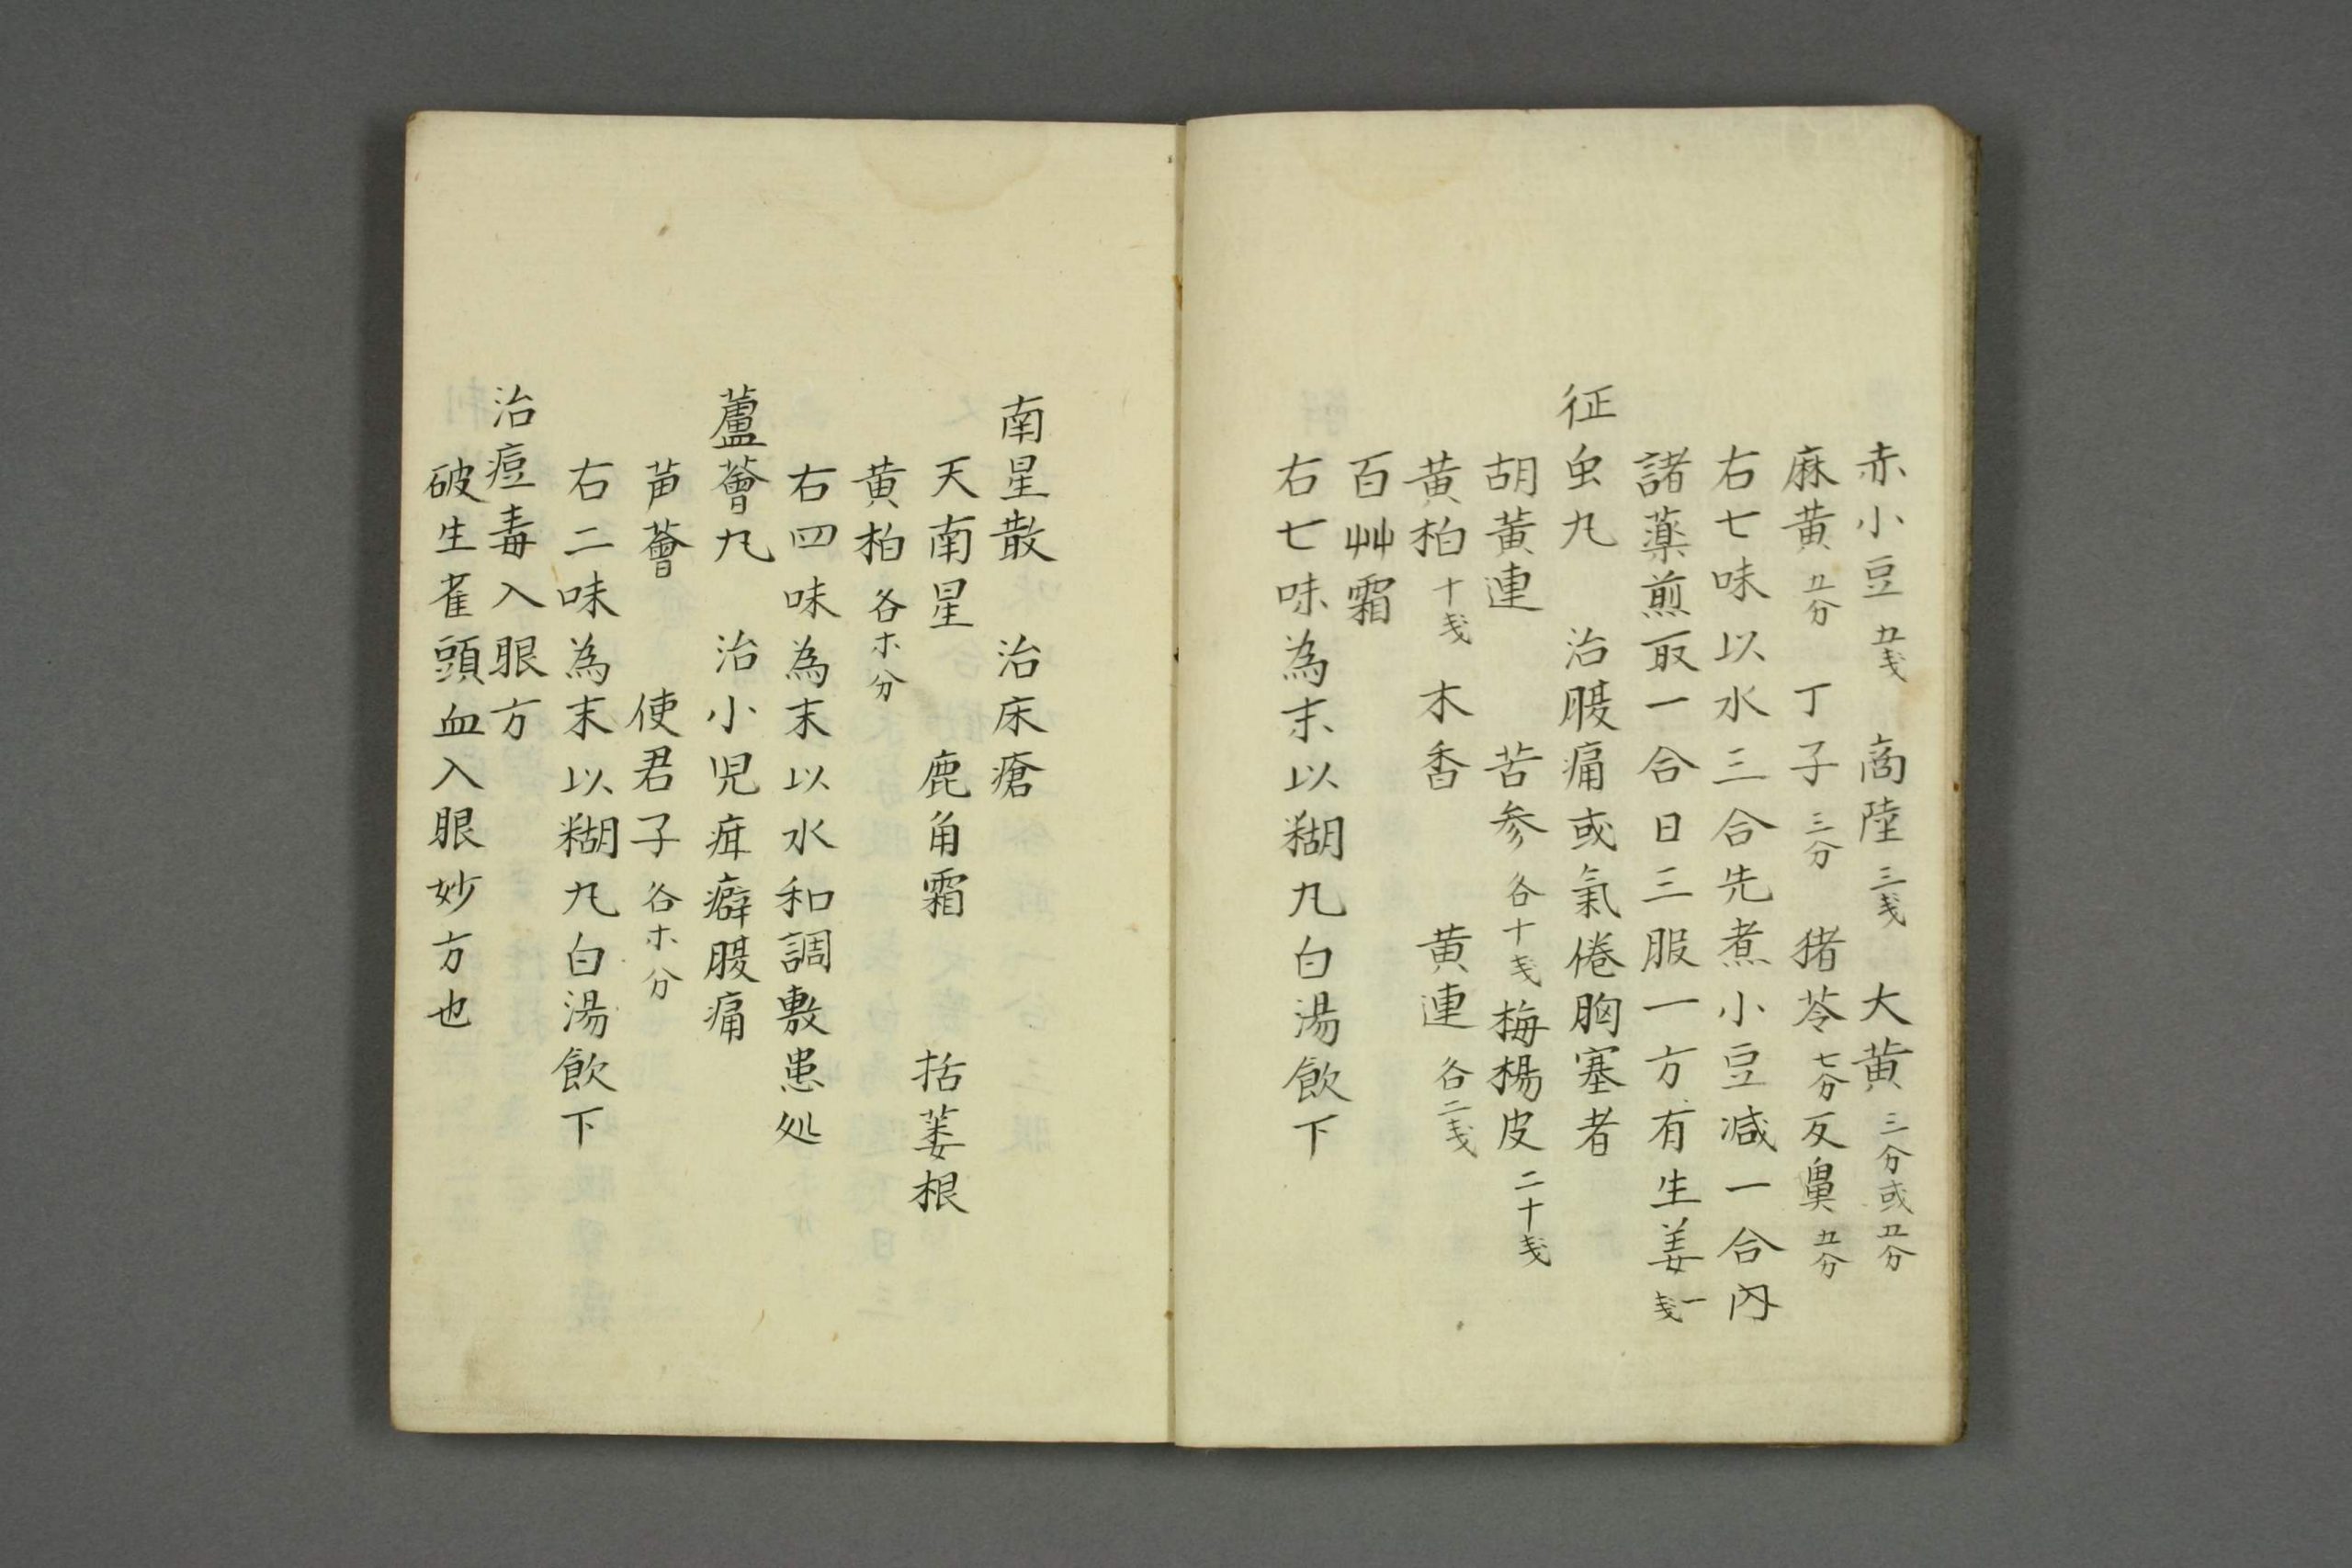 赤小豆 五戔 商陸 三戔 大黄 三分或五分
麻黄 五分 丁子 三分 猪苓 七分 反鼻 五分
右七味以水三合先煮小豆減一合内
諸薬煎取一合日三服一方有生姜 一戔
征虫丸 治腹痛或氣倦胸塞者
胡黄連 苦参 各十戔 梅楊皮 二十戔
黄柏 十戔 木香 黄連 各二戔
百艸霜
右七味為末以糊丸白湯飲下
南星散 治床瘡
天南星 鹿角霜 括蒌根
黄柏 各ホ分
右四味為末以水和調敷患処
蘆薈丸 治小児疳癖腹痛
芦薈 使君子 各ホ分
右二味為末以糊丸白湯飲下
治痘毒入眼方
破生雀頭血入眼妙方也